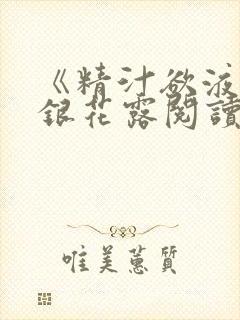 《精汁欲液
銀花露閱讀
唯美蕙質